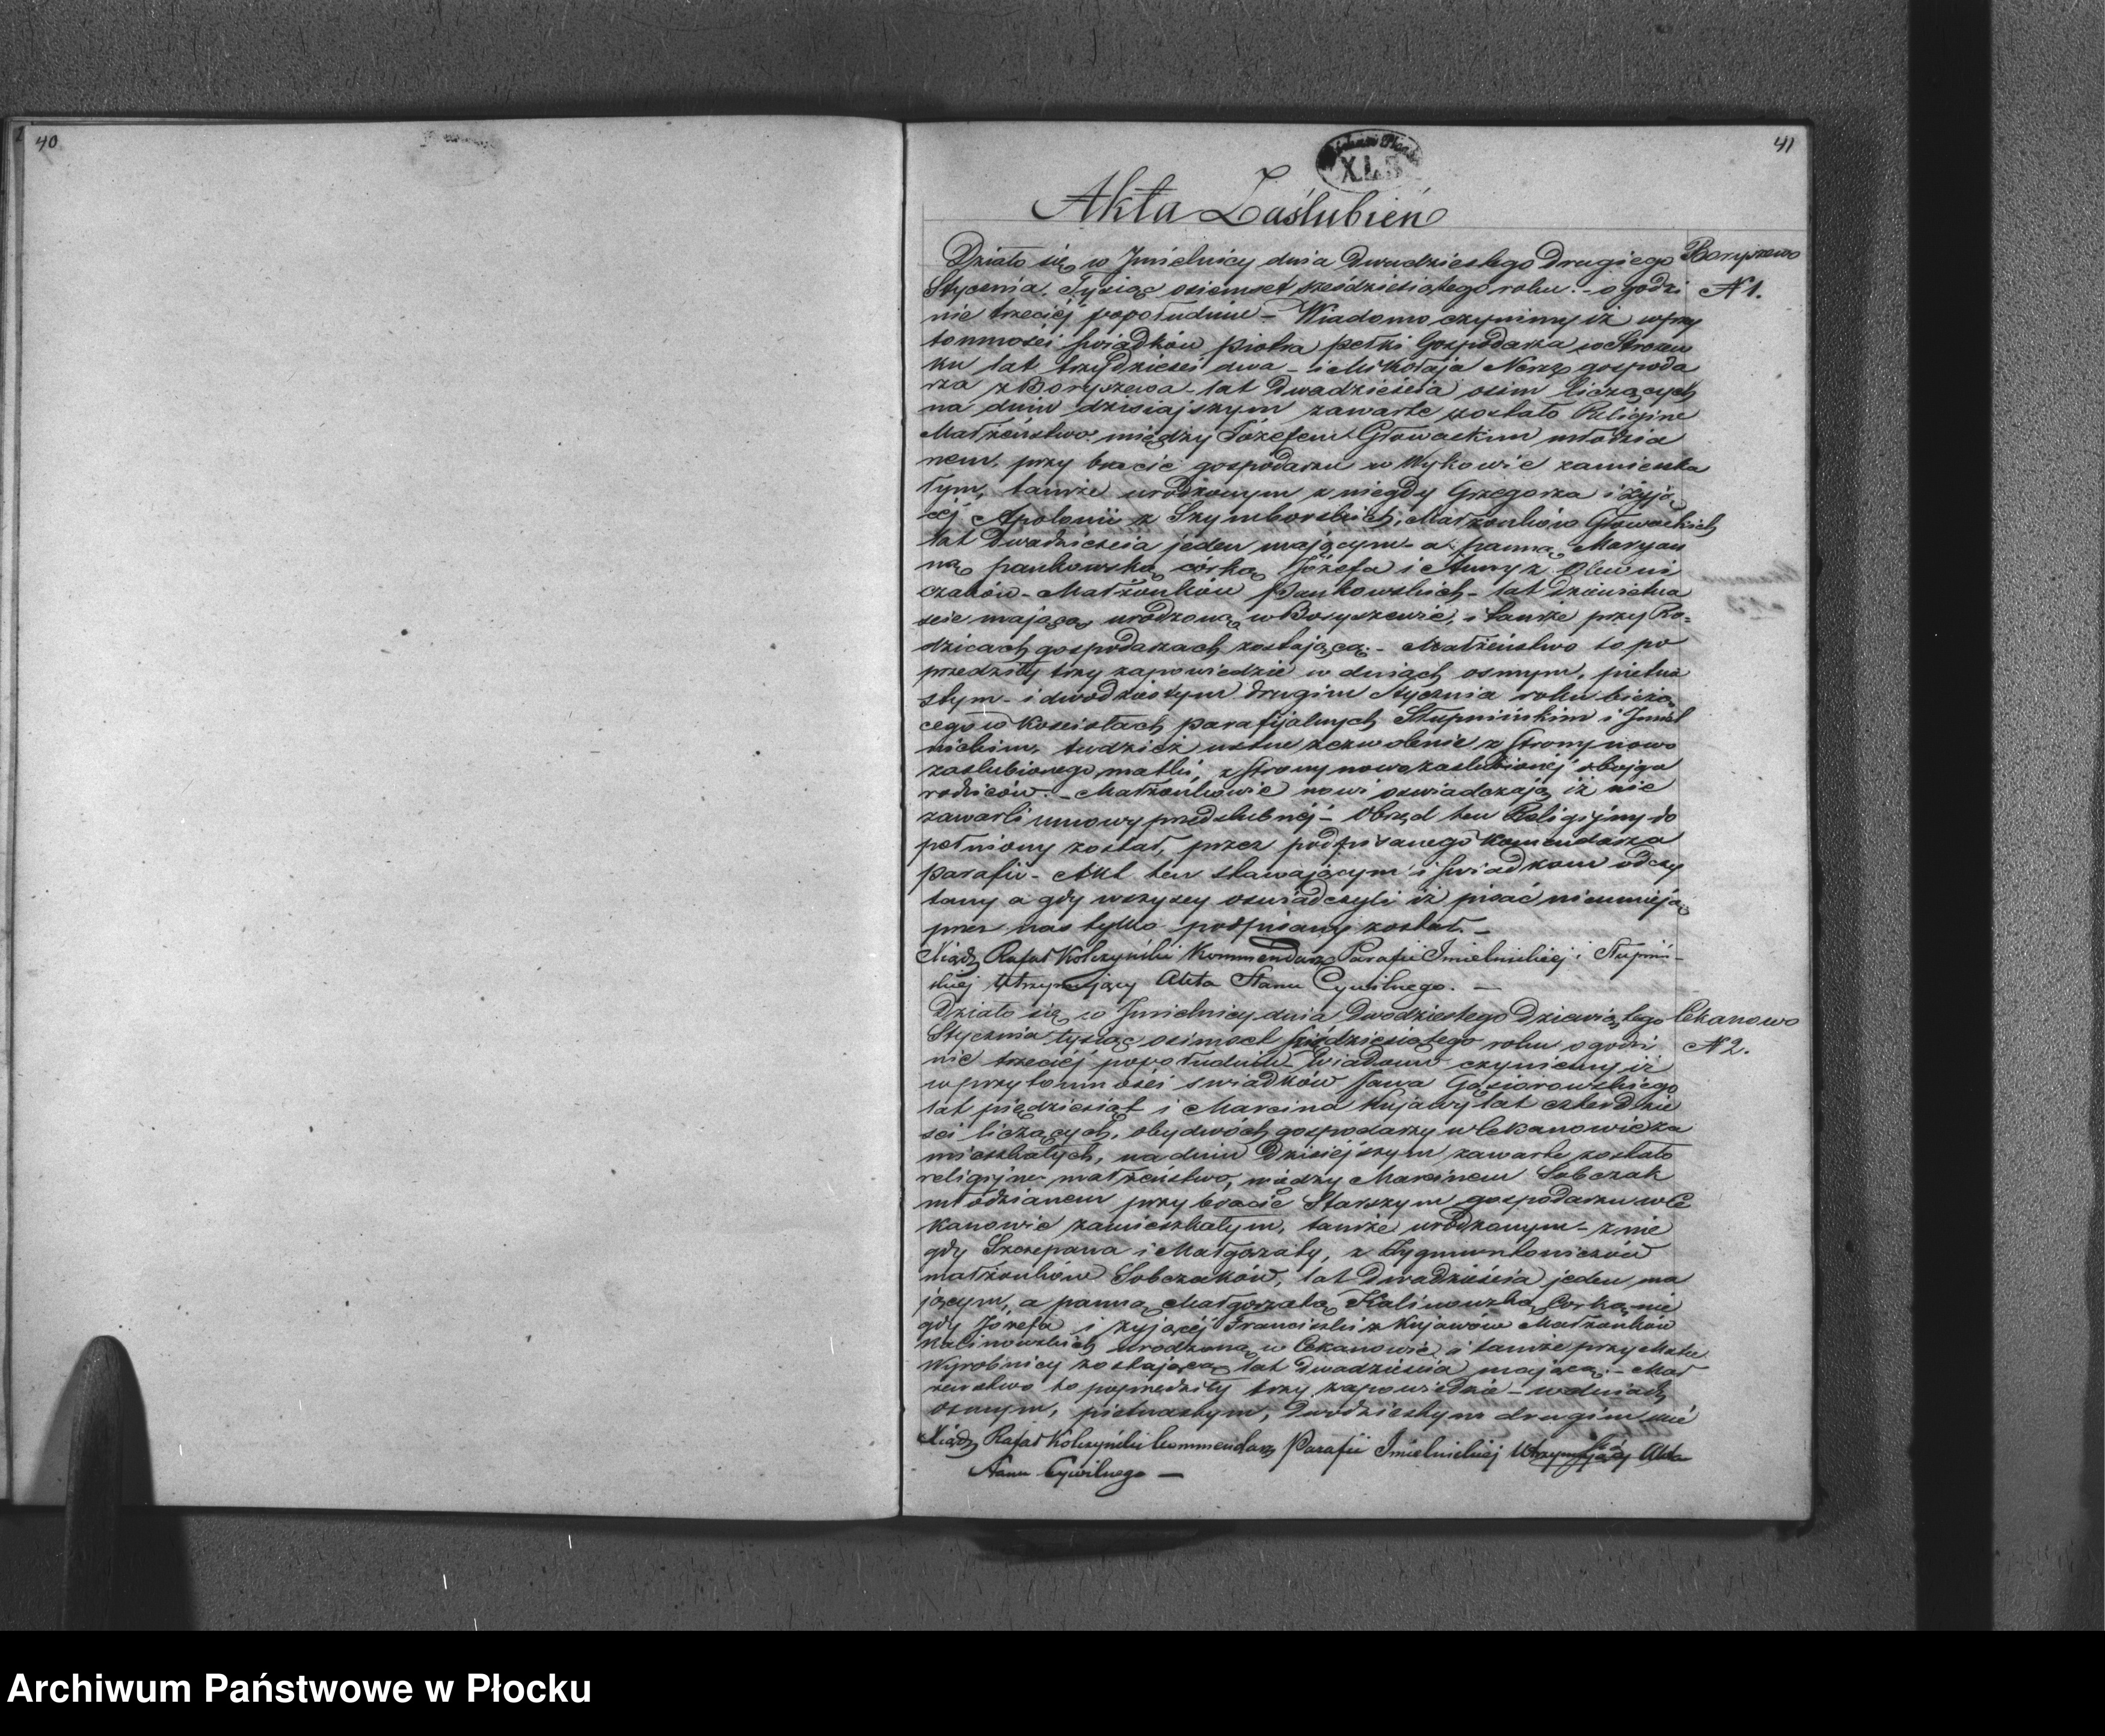 40
41
XLB
Akta Zaślubień
Boryszewo
N 1.
Działo się w Jmielnicy dnia Dwudziestego Drugiego
Stycznia, Tysiąc osiemset sześdziesiątego roku. - o godzi
nie trzeciéj popołudniu - Wiadomo czynimy iż w przy
tomności świadków Piotra Petki Gospodarza w
ku lat trzydzieści dwa - i Mikołaja gospoda
rza z Boryszewa - lat Dwadzieścia osim liczących
na dniu dzisiajszym zawarte zostało Religine
Małżeństwo między Józefem Głowackim młodzia
nem, przy bracie gospodarzu w Wykowie zamieszka
łym, tamże urodzonym z niegdy Grzegorza i żyją
céj Apolonii z Szymborskich, Małżonków Głowackich
lat Dwadzieścia jeden mającym - a panną Maryan
ną Pankowską córką Józefa i Anny z Olewni
czaków - Małżonków Pankowskich - lat Dziewietna
ście mającą urodzoną w Boryszewie, i tamże przy Ro=
dzicach gospodarzach zostającą. - Małżeństwo to po
przedziły trzy zapowiedzie w dniach osmym, pietna
stym - i dwódziestym drugim Stycznia roku bieżą
cego w Kosciołach parafijalnych Słupnińskim i Jmiel
nickim, tudzież ustne zezwolenie z strony nowo
zaślubionego matki, z strony nowozaślubionéj obojga
rodziców. - Małżonkowie nowi oswiadczają iż nie
zawarli umowy przedslubnéj - Obrzęd ten Religijny do
pełniony został, przez podpisanego Komendarza
parafii - Akt ten stawającym i swiadkom odczy
tany a gdy wszyscy oswiadczyli iż pisać nieumieją
przez nas tylko podpisany został. -
Xiądz Rafał Kolczyński Kommendarz Parafii Imielnickiej i Słupiń-
skiej Utrzymujący Akta Stanu Cywilnego. -
Cekanowo
N 2.
Działo się w Jmielnicy dnia Dwódziestego Dziewiątego
Stycznia tysiąc osimset roku o godzi
nie trzeciéj popołudniu - Wiadomo czyniemy iż
w przytomności swiadków Jana Gąsiorowskiego
lat piędziesiąt i Marcina Kujawy lat czterdzie
ści liczących, obydwóch gospodarzy w Cekanowie za
mieszkałych, na dniu Dzisiejszym zawarte zostało
religijne małżeństwo, miedzy Marcinem Sobczak
młodzianem przy bracie Starszym gospodarzu w Ce
kanowie zamieszkałym, tamże urodzonym - z nie
gdy Szczepana i Małgorzaty, z Zygmuntowiczów
małżonków Sobczaków, lat Dwadzieścia jeden ma
jącym, a panną Małgorzatą Kalinowską Corką nie
gdy Józefa i żyjącéj Franciszki z Kujawów Małżonków
Kalinowskich urodzoną w Cekanowie i tamże przy Matce
Wyrobnicy zostającą lat Dwadzieścia mającą. - Mał
żeństwo to poprzedziły trzy zapowiedzie - w dniach
osmym, pietnastym, Dwodziestym drugim
Xiądz Rafał Kolczyński Kommendarz Parafii Imielnickiej Utrzymujący Akta
Stanu Cywilnego -
Archiwum Państwowe w Płocku